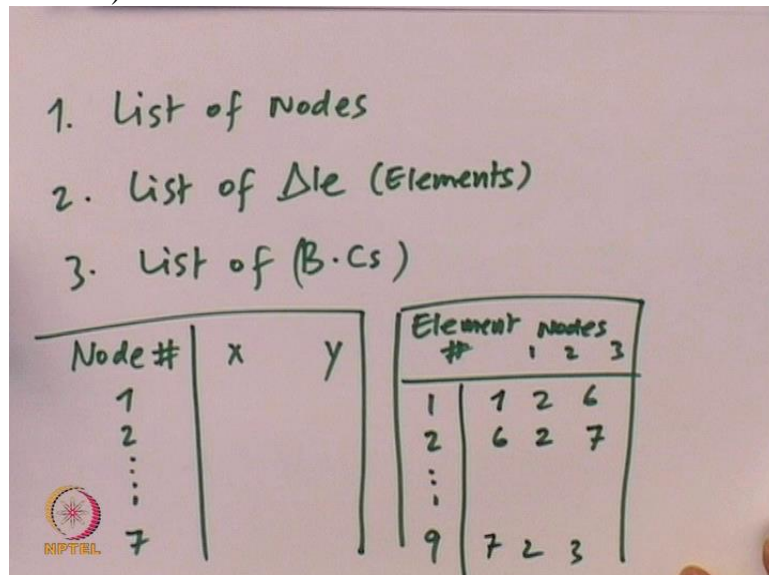 1. List of Nodes
2. List of Δle (Elements)
3. List of (B.Cs)
Node # x y
1
2
7
Element # Nodes 1 2 3
1 1 2 6
2 6 2 7
9 7 2 3
NPTEL